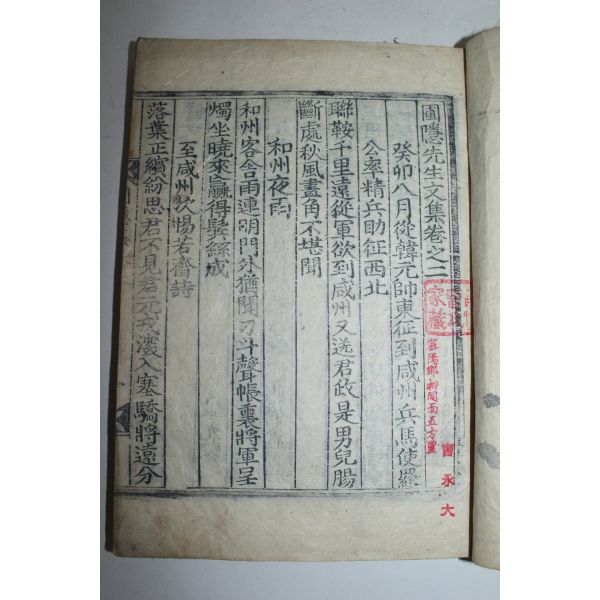 圃隱先生文集卷之二
癸卯八月從韓元帥東征到咸州兵馬使羅
公率精兵助征西北
聯鞍千里遠從軍欲到咸州又送君政是男兒腸
斷處秋風畫角不堪聞
和州夜雨
和州客舍雨連明門外猶聞刁斗聲帳裏將軍呈
燭坐曉來贏得鬂絲成
至咸州次惕若齋詩
落葉正繽紛思君不見君元戎深入塞驕將遠分
家藏
陽鄕初同面五方里
曺永大